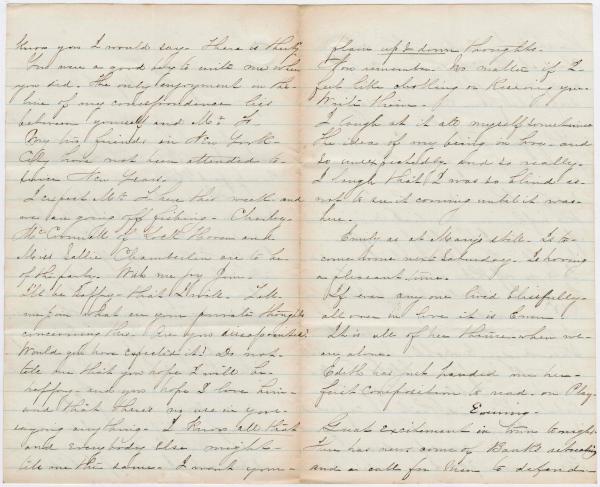 know you I would say. There is thirty
You were a good boy to write me when
you did. The only enjoyment in the
line of my correspondence lies
between yourself and Mr. H
My two friends in New York
City have not been attended to
since New Years.
I expect Mr. H here this week and
we are going off fishing - Charley
McCormick of Lock Haven and
Miss Sallie Chamberlin are to be
of the party. Wish me joy
I'll be happy - that I will. Tell
me now what are your private thoughts
concerning this. Are you disappointed?
Would you have expected it? Do not
tell me that you hope I will be
happy - and you hope I love him
and that there's no use in your
saying anything. I know all that
and everybody else might
tell me the same. I want your
plain up & down thoughts.
You remember. No matter if I
feel like bottling or keeping you
Write them.
I laugh at it all myself sometimes
the idea of my being in love - and
so unexpectedly and so really.
I laugh that I was so blind as
not to see it coming until it was
here.
Emily is at Mary's still. Is to
come home next Saturday. Is having
a pleasant time.
If ever any one lived blissfully
all over in love it is Emin
It is all of her theme when we
are alone.
Edith has just handed me her
first composition to read. on Play-
Evening.
Great excitement in town tonight
There has news come of Banks retreating
and a call for men to defend